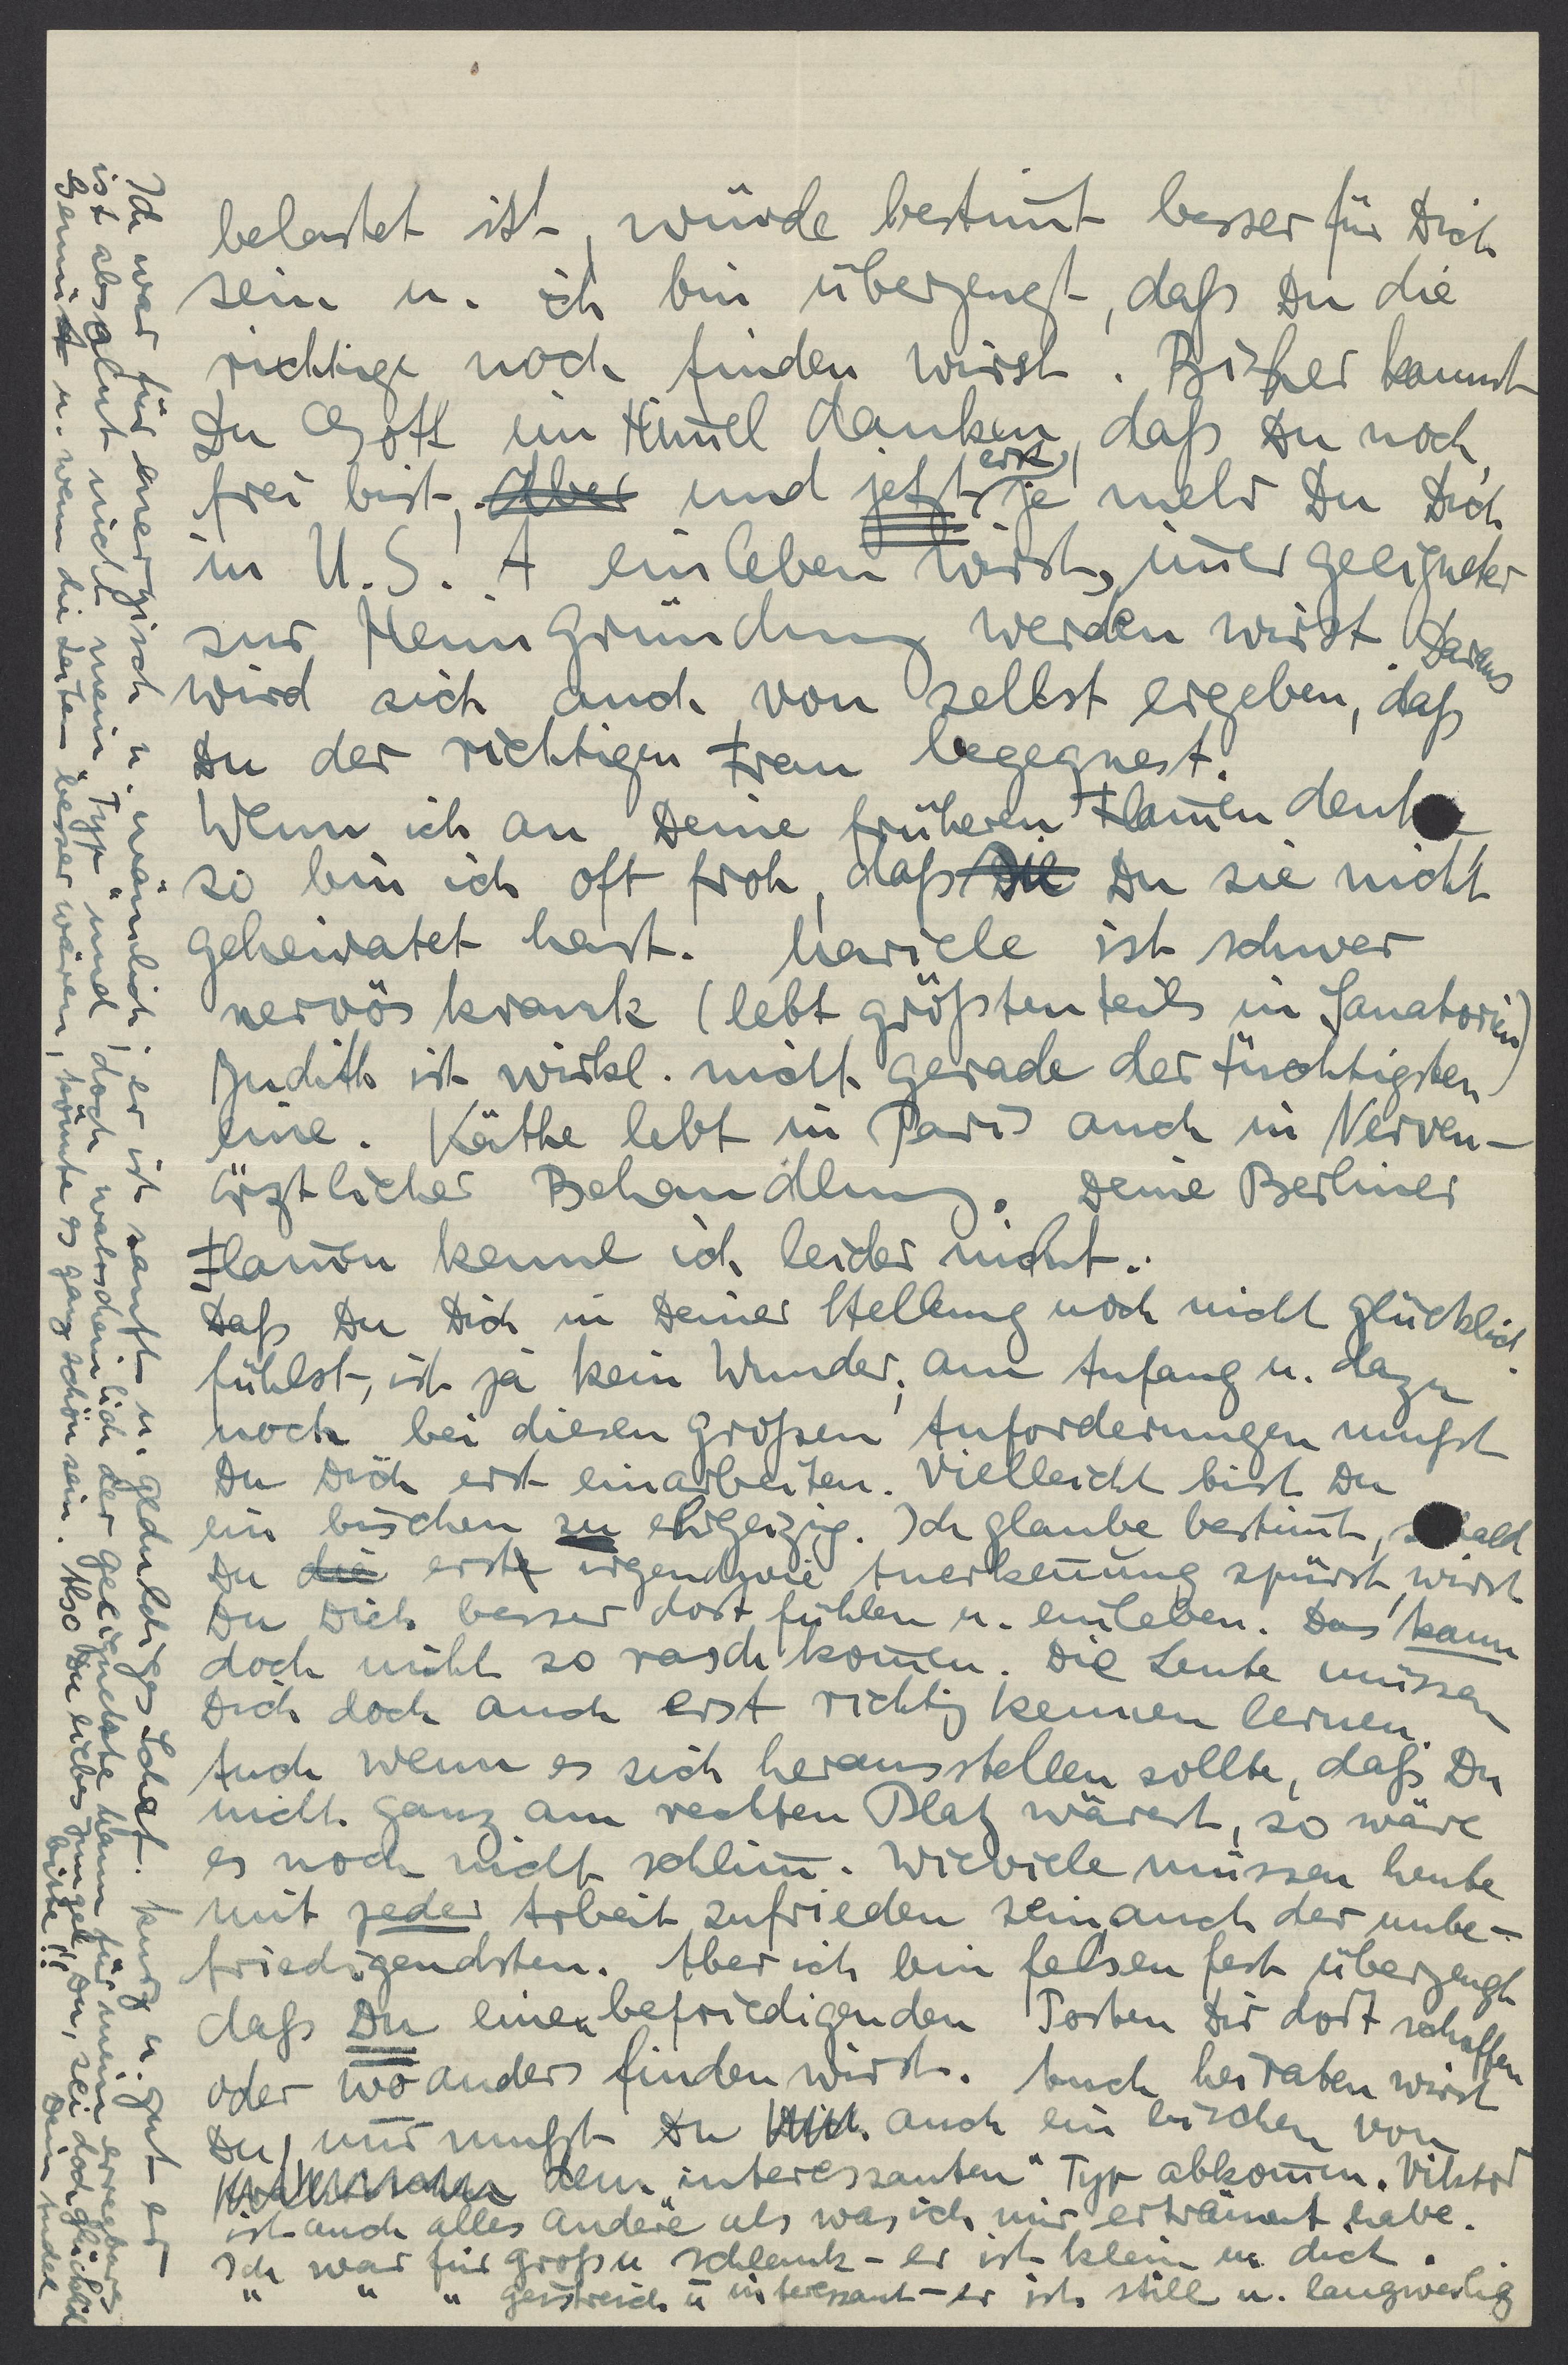 belastet ist, würde bestim̅t besser für Dich
sein u. ich bin überzeugt, daß Du die
richtige noch finden wirst. Bisher kannst
Du Gott im Him̅el danken, daß Du noch
frei bist, ~~Aber~~ und jetzt erst, je mehr Du Dich
in U.S.A einleben wirst, im̅er geeigneter
zur Heimgründung werden wirst. Daraus
wird sich auch von selbst ergeben, daß
Du der richtigen Frau begegnest.
Wenn ich an Deine früheren Flam̅en denke
so bin ich oft froh, daß ~~Die~~ Du sie nicht
geheiratet hast. Mariele ist schwer
nervös krank (lebt größtenteils in Sanatorien)
Judith ist wirkl. nicht gerade der tüchtigsten
eine. Käthe lebt in Paris auch in Nerven-
ärztlicher Behandlung. Deine Berliner
Flam̅en kenne ich leider nicht.
Daß Du Dich in Deiner Stellung noch nicht glücklich
fühlst, ist ja kein Wunder, am Anfang u. dazu
noch bei diesen großen Anforderungen mußt
Du Dich erst einarbeiten. Vielleicht bist Du
ein bischen zu ehrgeizig. Ich glaube bestim̅t, sobald
Du ~~die~~ erst irgendwie Anerken̅ung spürst, wirst
Du Dich besser dort fühlen u. einleben. Das kann
doch nicht so rasch kom̅en. Die Leute müssen
Dich doch auch erst richtig kennen lernen.
Auch wenn es sich herausstellen sollte, daß Du
nicht ganz am rechten Platz wärest, so wäre
es noch nicht schlim̅. Wieviele müssen heute
mit jeder Arbeit zufrieden sein auch der unbe-
friedigendsten. Aber ich bin felsenfest überzeugt
daß Du einen befriedigenden Posten Dir dort schaffen
oder wo anders finden wirst. Auch heiraten wirst
Du, nur mußt Du auch ein bischen von
dem „interessanten" Typ abkom̅en. Viktor
ist auch alles andere als was ich mir erträumt habe.
Ich war für groß u schlank - er ist klein u. dick.
" " " geistreich u interessant - er ist still u. langweilig
Ich war für energisch u. männlich; er ist sanft u. geduldiges Schaf. kurz u. gut er
ist absolut nicht mein „Typ" und doch wahrscheinlich der geeignetste Mann für mein erregbares
Gemüt u. wenn die Zeiten besser wären, könnte es ganz schön sein. Also Du liebes Jungele Du, sei doch glücklich
bitte!! Dein Trudel